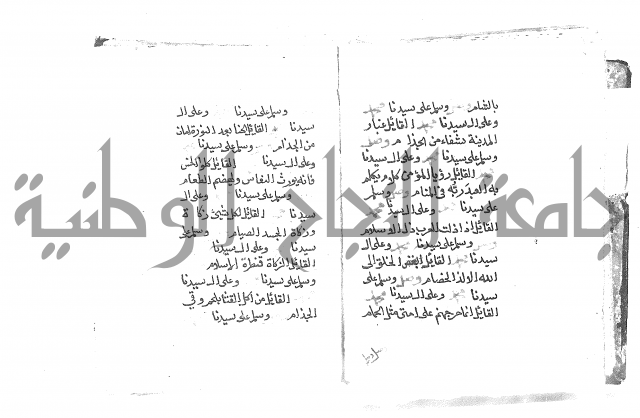 بالشام وسلم على سيدنا محمد
وعلى ال سيدنا محمد القائل غبار
المدينة شفاء من الجذام وصل
وسلم على سيدنا وعلى ال سيدنا
القائل رؤيا المؤمن كلام يكلم
به العبد ربه في المنام وسلم
على سيدنا وعلى ال سيدنا محمد
القائل اذا ذلت العرب ذل الاسلام
وسلم على سيدنا وعلى ال
سيدنا القائل ابغض الخلق الى
الله الالد الخصام وسلم على
سيدنا وعلى ال سيدنا محمد
القائل انما حر جهنم على امتي مثل الحمام
وسلم على سيدنا وعلى ال
سيدنا القائل الحنا بعد النورة امان
من الجذام وسلم على سيدنا
وعلى ال سيدنا القائل كلوا
فانه يورث النعاس ويهضم الطعام
وسلم على سيدنا وعلى ال
سيدنا القائل لكل شيء زكاة
وزكاة الجسد الصيام وسلم على
سيدنا وعلى ال سيدنا
القائل الزكاة قنطرة الاسلام
وسلم على سيدنا وعلى ال سيدنا
القائل من اكل القثا بلحم وقي
الجذام وسلم على سيدنا
جامعة النجاح الوطنية